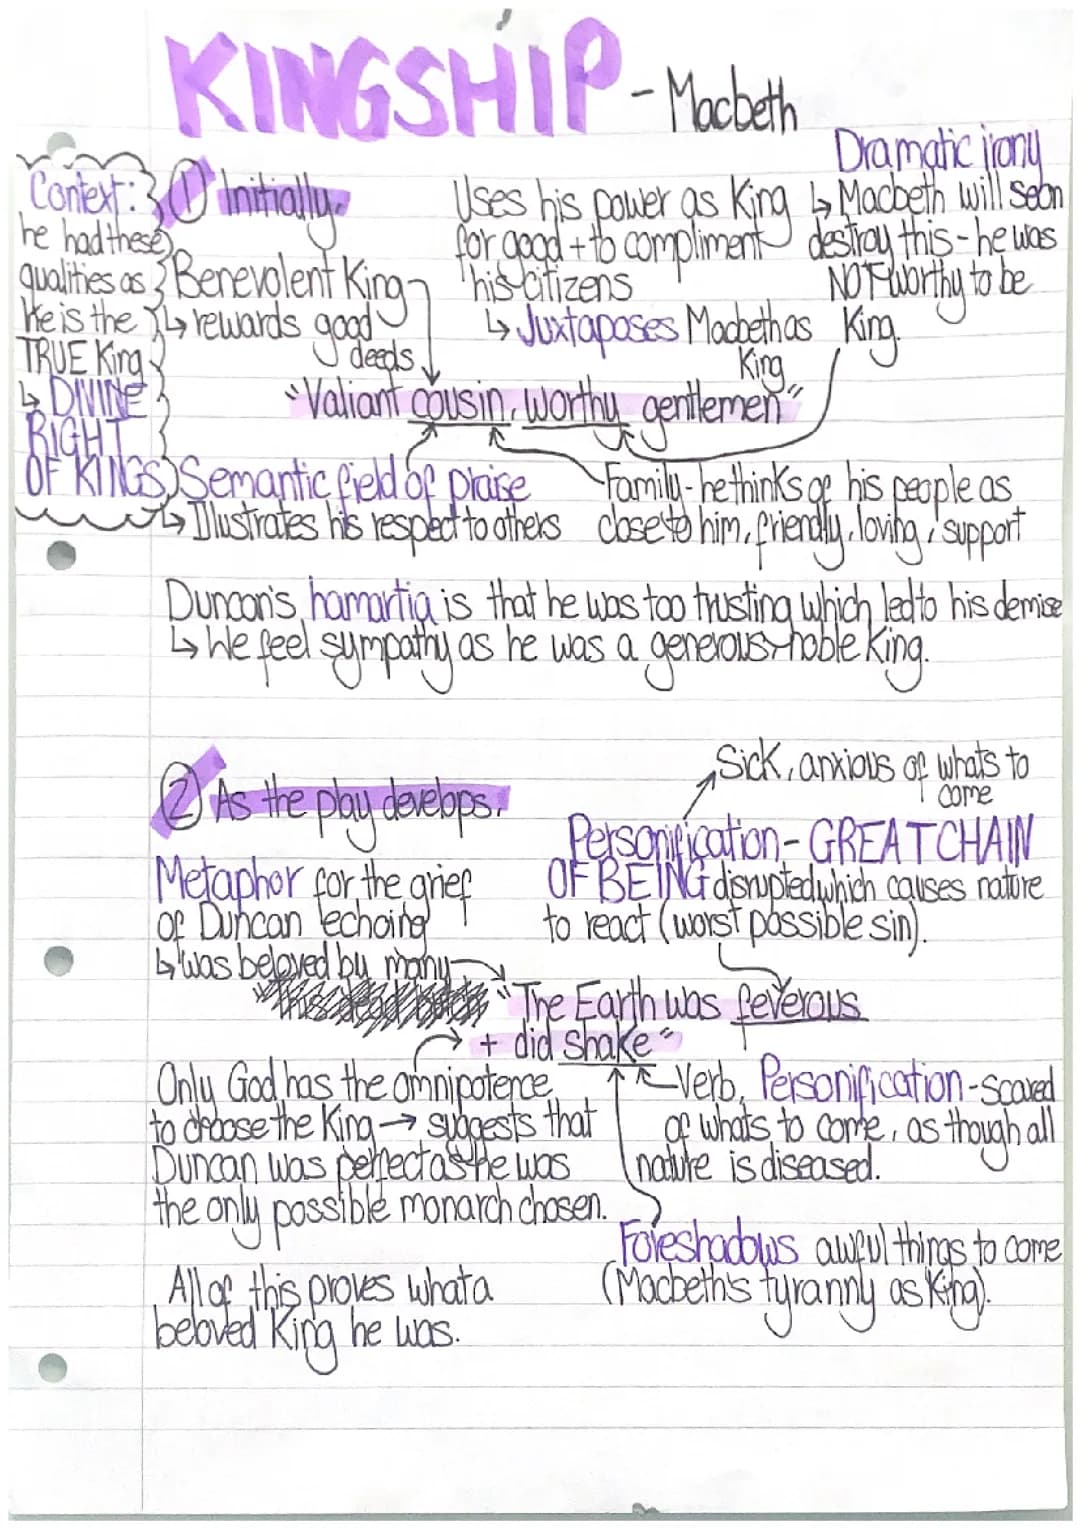 KINGSHIP - Macbeth
Context:
he had these
qualities as
He is the
TRUE King
↳ DIVINE
RIGHT
OF KINGS
① Initially,
Benevolent King
↳ rewards good
deeds
Uses his power as King
for good + to compliment
his citizens
↳ Juxtaposes Macbeth as
King
Dramatic irony
↳ Macbeth will soon
destroy this - he was
NOT worthy to be
King.
"Valiant cousin, worthy gentlemen"
Semantic field of praise
↳ Illustrates his respect to others
Family - he thinks of his people as
close to him, friendly, loving, support
Duncan's hamartia is that he was too trusting which led to his demise
↳ We feel sympathy as he was a generous, noble King.
② As the play develops,
Metaphor for the grief
of Duncan echoing
↳ was beloved by many
Sick, anxious of whats to
come
Personification - GREAT CHAIN
OF BEING disrupted which causes nature
to react (worst possible sin).
"The Earth was feverous
+ did shake"
Only God has the omnipotence
to choose the King → suggests that
Duncan was perfect as he was
the only possible monarch chosen.
Verb, Personification - scared
of whats to come, as though all
nature is diseased.
Foreshadows awful things to come
(Macbeth's tyranny as King).
All of this proves what a
beloved King he was.